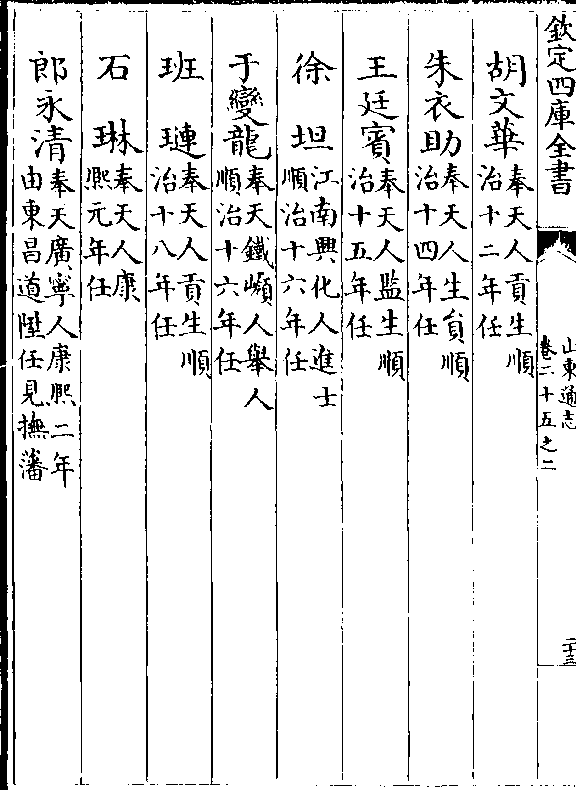 欽定四庫全書
山東通志
卷二十五之二
二十三
胡文華奉天人貢生順
治十二年任
朱衣助奉天人生員順
治十四年任
王廷賓奉天人監生順
治十五年任
徐坦江南興化人進士
順治十六年任
于變龍奉天鐵嶺人舉人
順治十六年任
班璉奉天人貢生順
治十八年任
石琳奉天人康
熙元年任
郎永清奉天廣寧人康熙二年
由東昌道陞任見撫藩